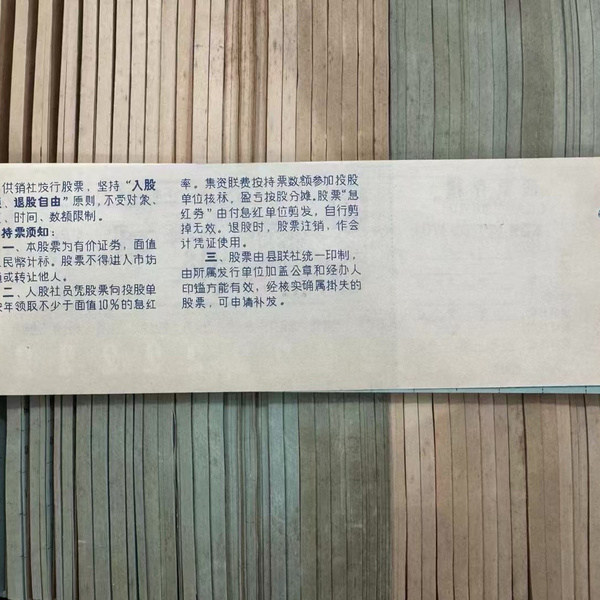 供销社发行股票，坚持“入股
、退股自由”原则，不受对象、
、时间、数额限制。
持票须知：
一、本股票为有价证券，面值
民币计标。股票不得进入市场
或转让他人。
二、入股社员凭股票向投股单
年领取不少于面值10%的息红
率。集资联费按持票数额参加投股
单位核标，盈亏按股分摊。股票“息
红券”由付息红单位剪发，自行剪
掉无效。退股时，股票注销，作会
计凭证使用。
三、股票由县联社统一印制，
由所属发行单位加盖公章和经办人
印鑑方能有效，经核实确属挂失的
股票，可申请补发。